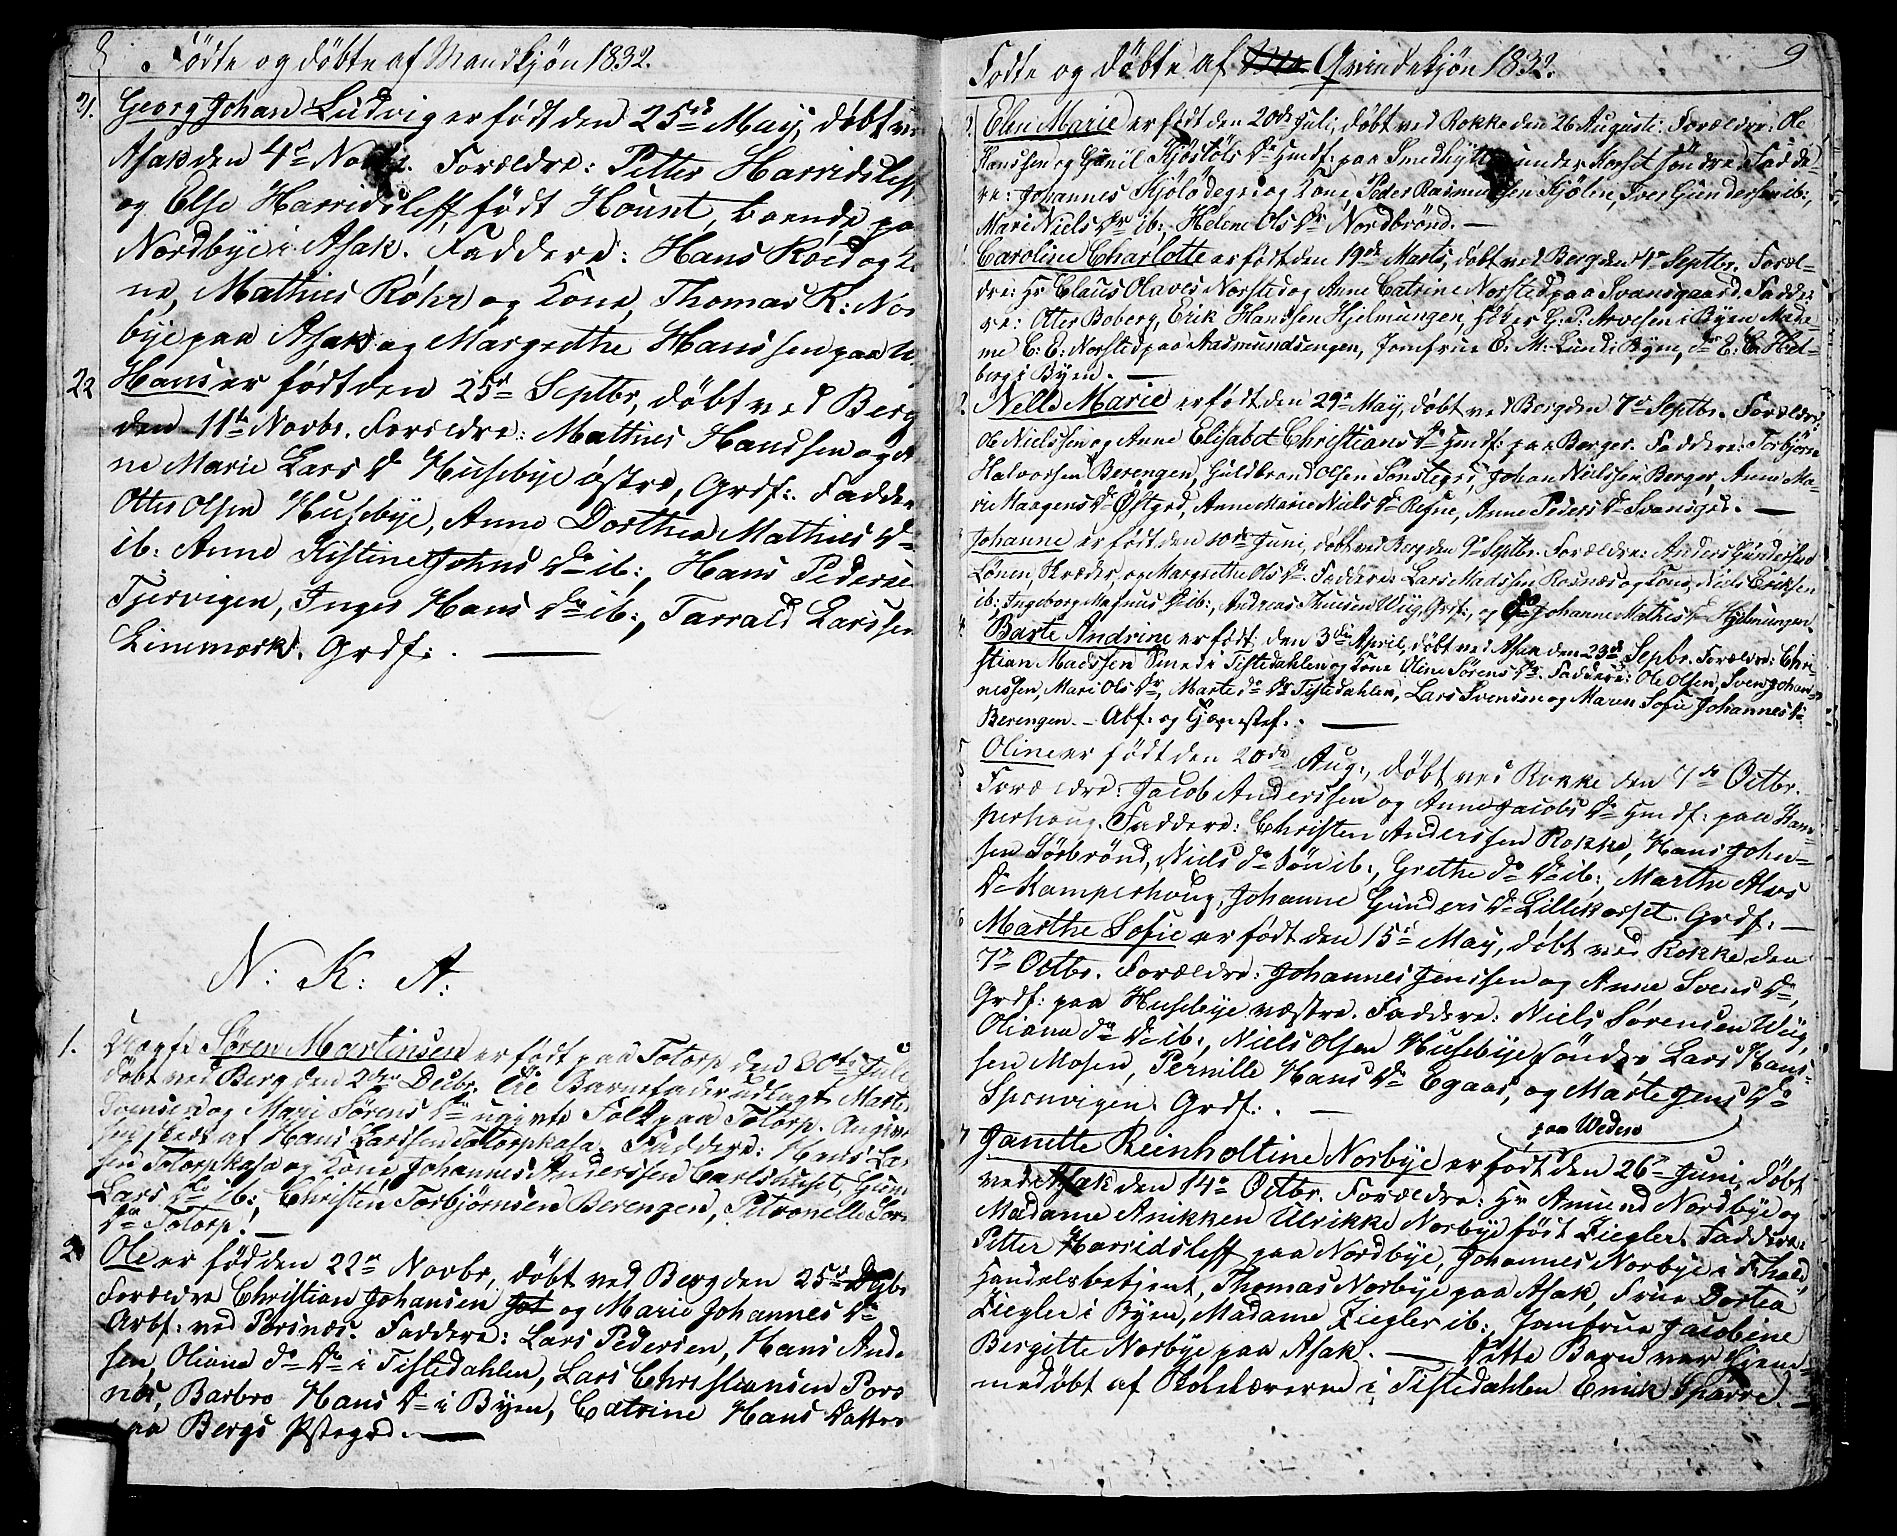 8 Födte og döbte af Mandkjön 1832.
21. Georg Johan Ludvig er født den 25de May, döbt ved
Asak den 4de Novbr. Forældre: Petter Harridsleff
og Else Harridsleff, født Hount, boende paa
Nordbye i Asak. Faddere: Hans Röed og Ko-
ne, Mathies Röhr og Kone, Thomas K: Nor
bye paa Asak og Margrethe Hanssen paa
22 Hans er født den 25de Septbr, döbt ved Berg
den 11te Novbr. Forældre: Mathies Hanssen og An
ne Marie Lars Dr Husebye östre, Grdf: Faddere
Otter Olsen Husebye, Anne Dorthea Mathies Dr
ib: Anne Kistine Johns Dr ib:, Hans Pedersen
Tjervigen, Inger Hans Dr ib:, Tarrald Larssen
Linemork. Grdf:.
N: K: A:
1. Uægte Sören Martinsen er født paa Totorp den 20de Juli
döbt ved Berg den 2den Decbr. Til Barnefader udlagt Marte
Svensen og Mari Sörens Dr ugivte Folk paa Totorp. Angivel
sen skeet af Hans Larssen Totorpkasa. Faddere: Hans Lar
sen Totorpkasa og Kone, Johannes Anderssen Carlshuset,
Lars Dr ib:, Christen Torbjörnsen Berengen, Petronelle Sör
Dr Totorp.
2 Ole er fød den 22de Novbr, döbt ved Berg den 25de Dcbr
Forældre Christian Johansen og Marie Johannes Dr
Arbf: ved Porsnæs. Faddere: Lars Pedersen, Hans Ande
sen, Oliane do Dr i Tistedahlen, Lars Christiansen Pors
næs, Barbro Hans Dr i Byen, Catrine Hans Datter
paa Bergs Pstegrd.
Födte og döbte af Qvindekjön 1832. 9
Elen Marie er født den 20de Juli, döbt ved Rokke den 26 Augusti. Forældre: Ole
Hanssen og Gunil Kjöstöls Dr Hmdf: paa Smedhytte under Korset söndre. Fadde
re: Johannes Kjölödegrd og Kone, Peder Rasmussen Kjölen, Iver Gundersen ib:,
Mari Niels Dr ib:, Helene Ols Dr Nordbrönd.
Caroline Charlotte er født den 19de Marts, döbt ved Berg den 4de Septbr. Foræl-
dre: Hr Claus Olaves Norsted og Ane Catrine Norsted paa Svansgaard. Fadde-
re: Otter Boberg, Erik Hanssen Hjelmungen, G: P: Arvesen i Byen, Mada-
me C: E: Norsted paa Aasmundsengen, Jomfrue C: M: Lund i Byen, do E: C: Hol-
berg i Byen.
Nelle Marie er født den 29de May, döbt ved Berg den 7de Septbr. Forældre:
Ole Nielssen og Anne Elisabet Christians Dr Hmdf: paa Berger. Faddere: Torbjörn
Halvorsen Berengen, Guldbrand Olsen Sondlegrd, Johan Nielssen Berger, Anne Ma-
rie Haagens Dr Östgrd, Anne Marie Niels Dr Refne, Anne Peders Dr Svansgrd.
Johanne er født den 10de Juni, döbt ved Berg den 9de Septbr. Forældre: Anders Gundersen
Lönen, Skræder, og Margrethe Ols Dr. Faddere: Lars Madssen Rosnæs og Kone, Niels Eriksen
ib: Ingeborg Magnus Dr ib:, Andreas Thuesen Wiig, Grdf:, og Johanne Mathis Dr Hjelmungen.
Barte Andrine er født den 3die April, döbt ved Asak den 23de Sepbr. Forældre: Chri-
stian Madssen Smed i Tistedahlen og Kone Oline Sörens Dr. Faddere: Ole Olsen, Sven Johan-
nessen, Mari Ols Dr, Marte do Dr Tistedahlen, Lars Svensen og Maren Sofie Johannes Dr
Berengen. - Abf. og Hjemstef..
5 Oline er født den 20de Aug:, döbt ved Rokke den 7de Octbr.
Forældre: Jacob Anderssen og Anne Jacobs Dr Hmdf: paa Kam-
perhoug. Faddere: Christen Anderssen Rokke, Hans John-
sen Sörbrönd, Niels do Sön ib:, Grethe do Dr ib:, Marthe Alers
Dr Kamperhoug, Johanne Gunders Dr Lillekorset. Grdf:
6 Marthe Sofie er født den 15de May, döbt ved Rokke den
7de Octbr. Forældre: Johannes Jenssen og Anne Svens Dr,
Grdf: paa Husebye væstre. Faddere: Niels Sörensen Wiig,
Oliana do Dr ib:, Niels Olsen Husebye söndre, Lars Hans-
sen Mosen, Pernille Hans Dr Egaas, og Marte Jens Dr
Sponvigen. Grdf:.
paa Weden
7 Janette Reinholtine Norbye er født den 26de Juni, döbt
ved Asak den 14de Octbr. Forældre: Hr Amund Nordbye og
Madame Anikken Ulrikke Norbye født Ziegler. Faddere:
Petter Harridsleff paa Nordbye, Johannes Norbye i Fr:hald,
Handelsbetjent, Thomas Norbye paa Asak, Frue Dortea
Ziegler i Byen, Madame Ziegler ib: Jomfrue Jacobine
Bergitte Norbye paa Asak. Dette Barn var hjem-
medöbt af Skolelæreren i Tistedahlen Emik Sparre.